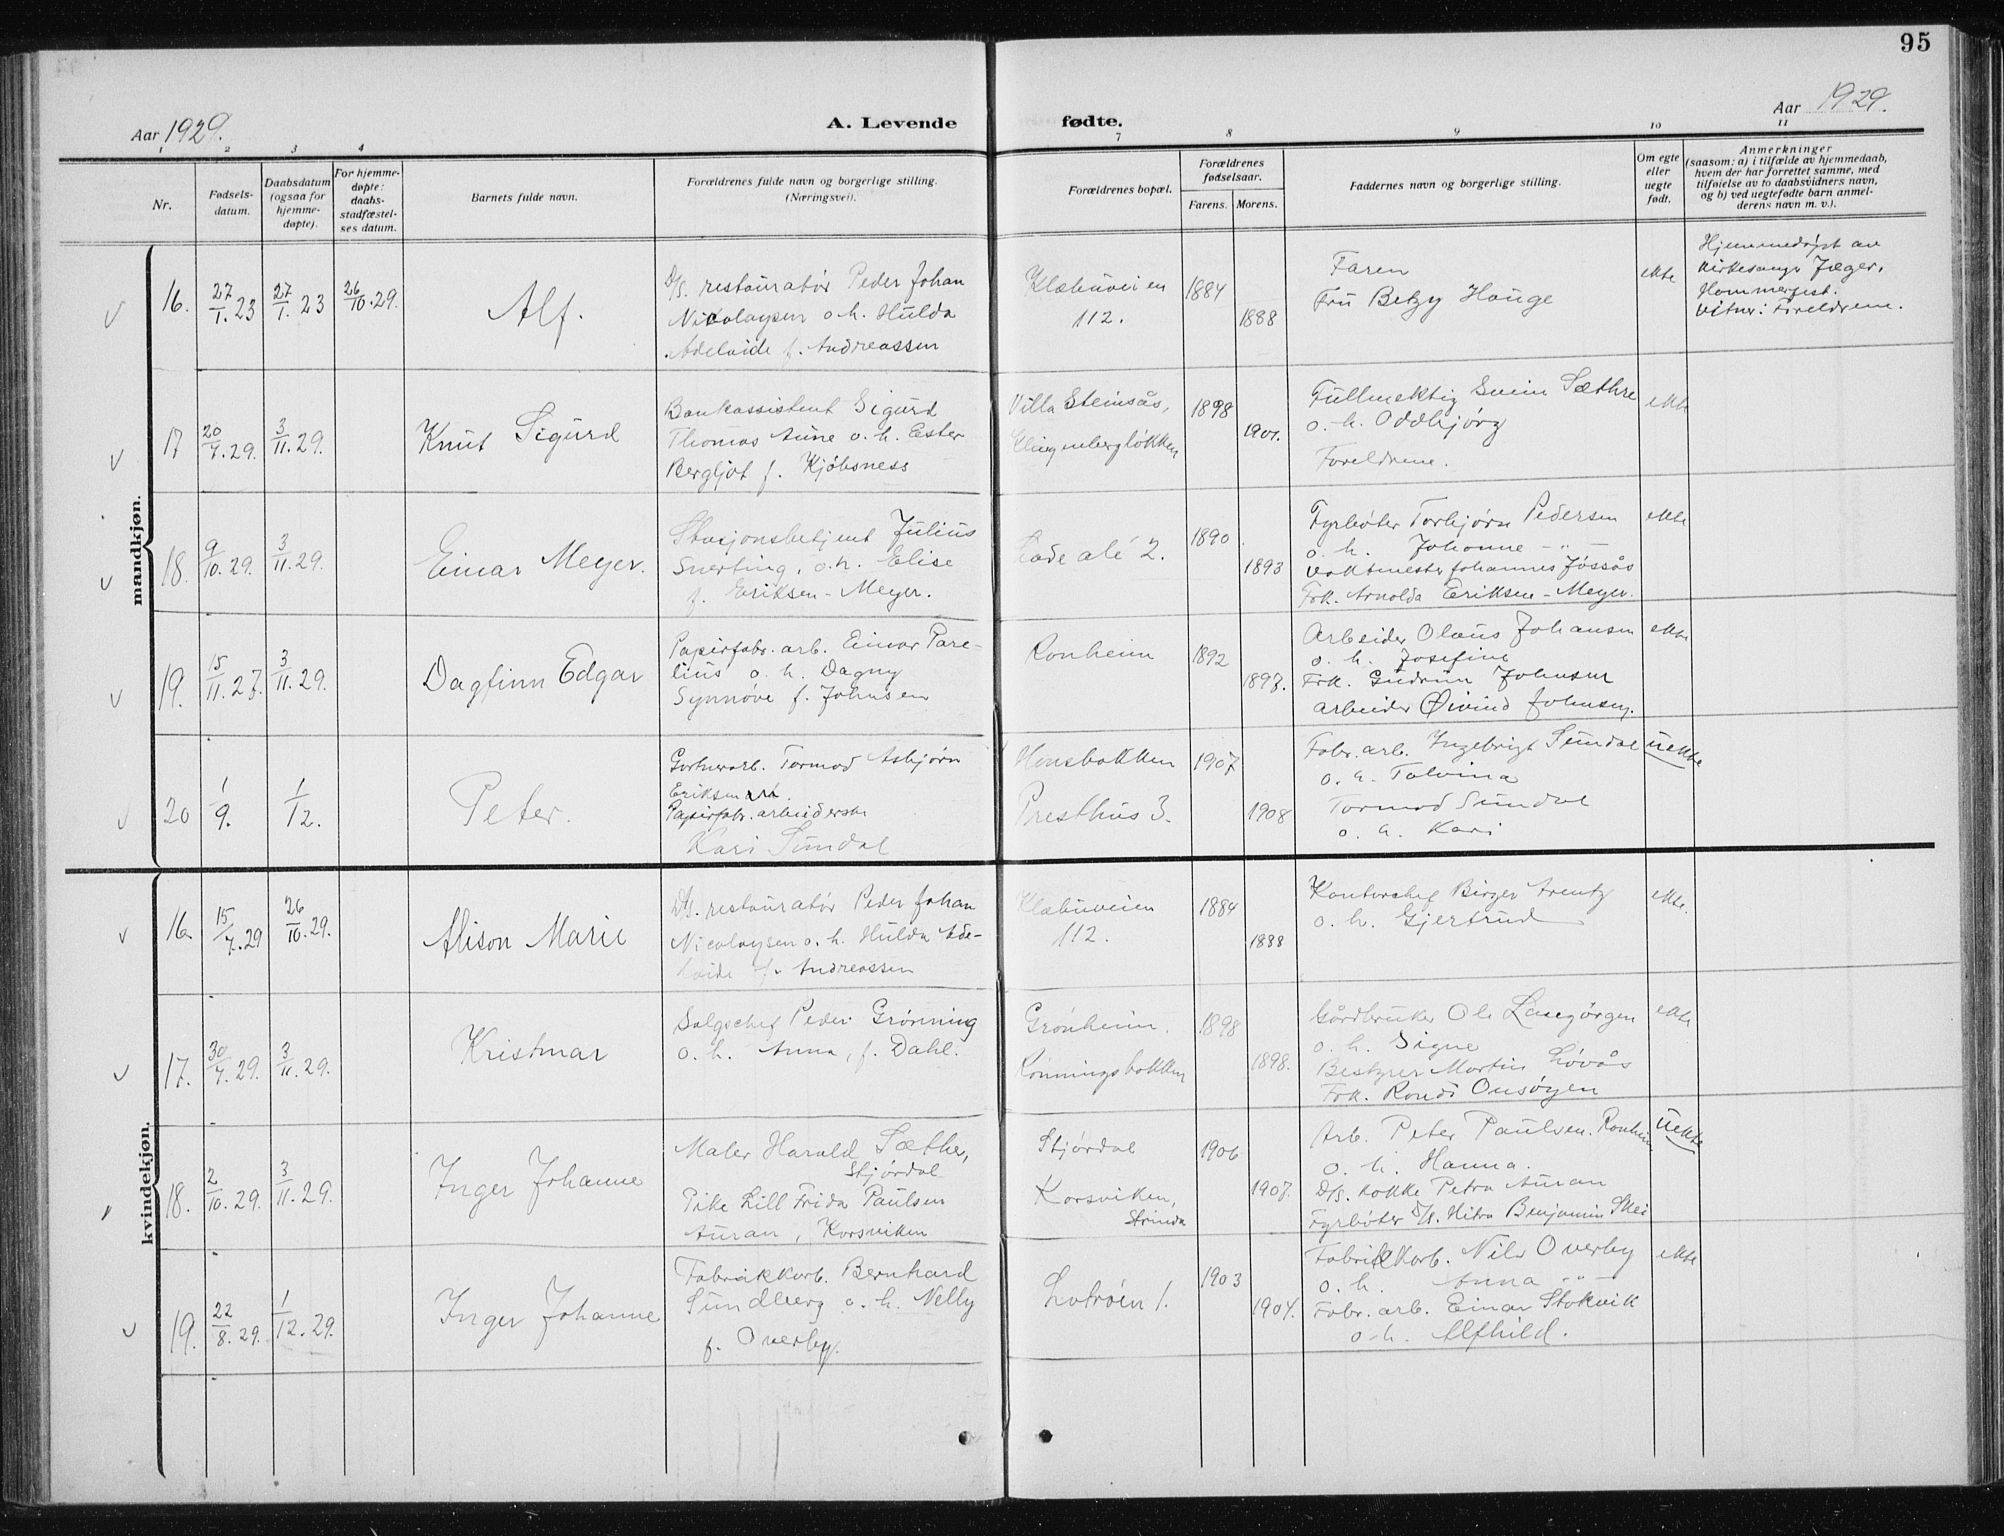 95
Aar 1929.
A. Levende fødte.
Aar 1929.
1 2 3 4 7 8 9 10 11
Nr.
Fødsels-
datum.
Daabsdatum
(ogsaa for
hjemme-
døpte).
For hjemme-
døpte:
daabs-
stadfæstel-
ses datum.
Barnets fulde navn.
Forældrenes fulde navn og borgerlige stilling.
(Næringsvei).
Forældrenes bopæl.
Forældrenes
fødselsaar.
Farens. Morens.
Faddernes navn og borgerlige stilling.
Om egte
eller
uegte
født.
Anmerkninger
(saasom: a) i tilfælde av hjemmedaab,
hvem der har forrettet samme, med
tilføielse av to daabsvidners navn,
og b) ved uegtefødte barn anmel-
derens navn m. v.).
mandkjøn.
16. 27/1.23 27/1.23 26/10.29.
Alf.
D/S. restauratør Peder Johan
Nicolaysen o. h. Hulda
Adelaide f. Andreassen
Klæbuveien
112.
1884
1888
Faren
Fru Betzy Hauge
ekte
Hjemmedøpt av
kirkesanger Jæger,
Hammerfest.
Vitner: Foreldrene.
17 20/7.29. 3/11.29.
Knut Sigurd
Bankassistent Sigurd
Thomas Aune o. h. Ester
Bergljot f. Kjøbsness
Villa Steinsås,
Klingenbergløkken
1898
1901.
Fullmektig Svein Sæthre
o. h. Oddbjørg
Foreldrene.
ekte
18. 9/10.29. 3/11.29.
Einar Meyer.
Stasjonsbetjent Julius
Snerting, o. h. Elise
f. Eriksen-Meyer.
Lade alé 2.
1890
1893
Fyrbøter Torbjørn Pedersen
o. h. Johanne -"-
Vaktmester Johannes Jøssås
Frk. Arnolda Eriksen-Meyer.
ekte
19. 15/11.27. 3/11.29.
Dagfinn Edgar
Papirfabr. arb. Einar Pare-
lius o. h. Dagny
Synnøve f. Johnsen
Ronheim
1892
1893.
Arbeider Olaus Johansen
o. h. Josefine
Frk. Gudrun Johnsen
arbeider Øivind Johnsen.
ekte
20 1/9. 1/12.
Peter.
Gartnerarb. Tormod Asbjørn
Eriksen
Papirfabr. arbeiderske
Kari Sundal
Hansbakken
Presthus 3.
1907
1908
Fabr. arb. Ingebrigt Sundal
o. h. Talvina
Tormod Sundal
o. h. Kari
uekte
kvindekjøn.
16. 15/7.29 26/10.29.
Alison Marie
D/S. restauratør Peder Johan
Nicolaysen o. h. Hulda Ade-
laide f. Andreassen
Klæbuveien
112.
1884
1888
Kontorchef Birger Arentz
o. h. Gjertrud
ekte.
17. 30/7.29. 3/11.29.
Kristmar
Salgschef Peder Grønning
o. h. Anna, f. Dahl.
Grønheim.
Rønningsbakken
1898
1898.
Gårdbruker Ole Langørgen
o. h. Signe
Bestyrer Martin Løvås
Frk. Randi Onsøyen
ekte
18. 2/10.29. 3/11.29.
Inger Johanne
Maler Harald Sæther,
Stjørdal
Pike Lill Frida Paulsen
Auran, Korsviken
Stjørdal
Korsviken,
Strinda
1906
1907.
Arb. Peter Paulsen. Ronheim
o. h. Hanna.
D/S. kokke Petra Auran
Fyrbøter D/S. Hitra Benjamin Skei
uekte
19. 22/8.29. 1/12.29.
Inger Johanne
Fabrikkarb. Bernhard
Sundberg o. h. Nelly
f. Overby.
Ladrøen 1.
1903
1904.
Fabrikkarb. Nils Overby
o. h. Anna -"-
Fabr. arb. Einar Stokvik
o. h. Alfhild.
ekte